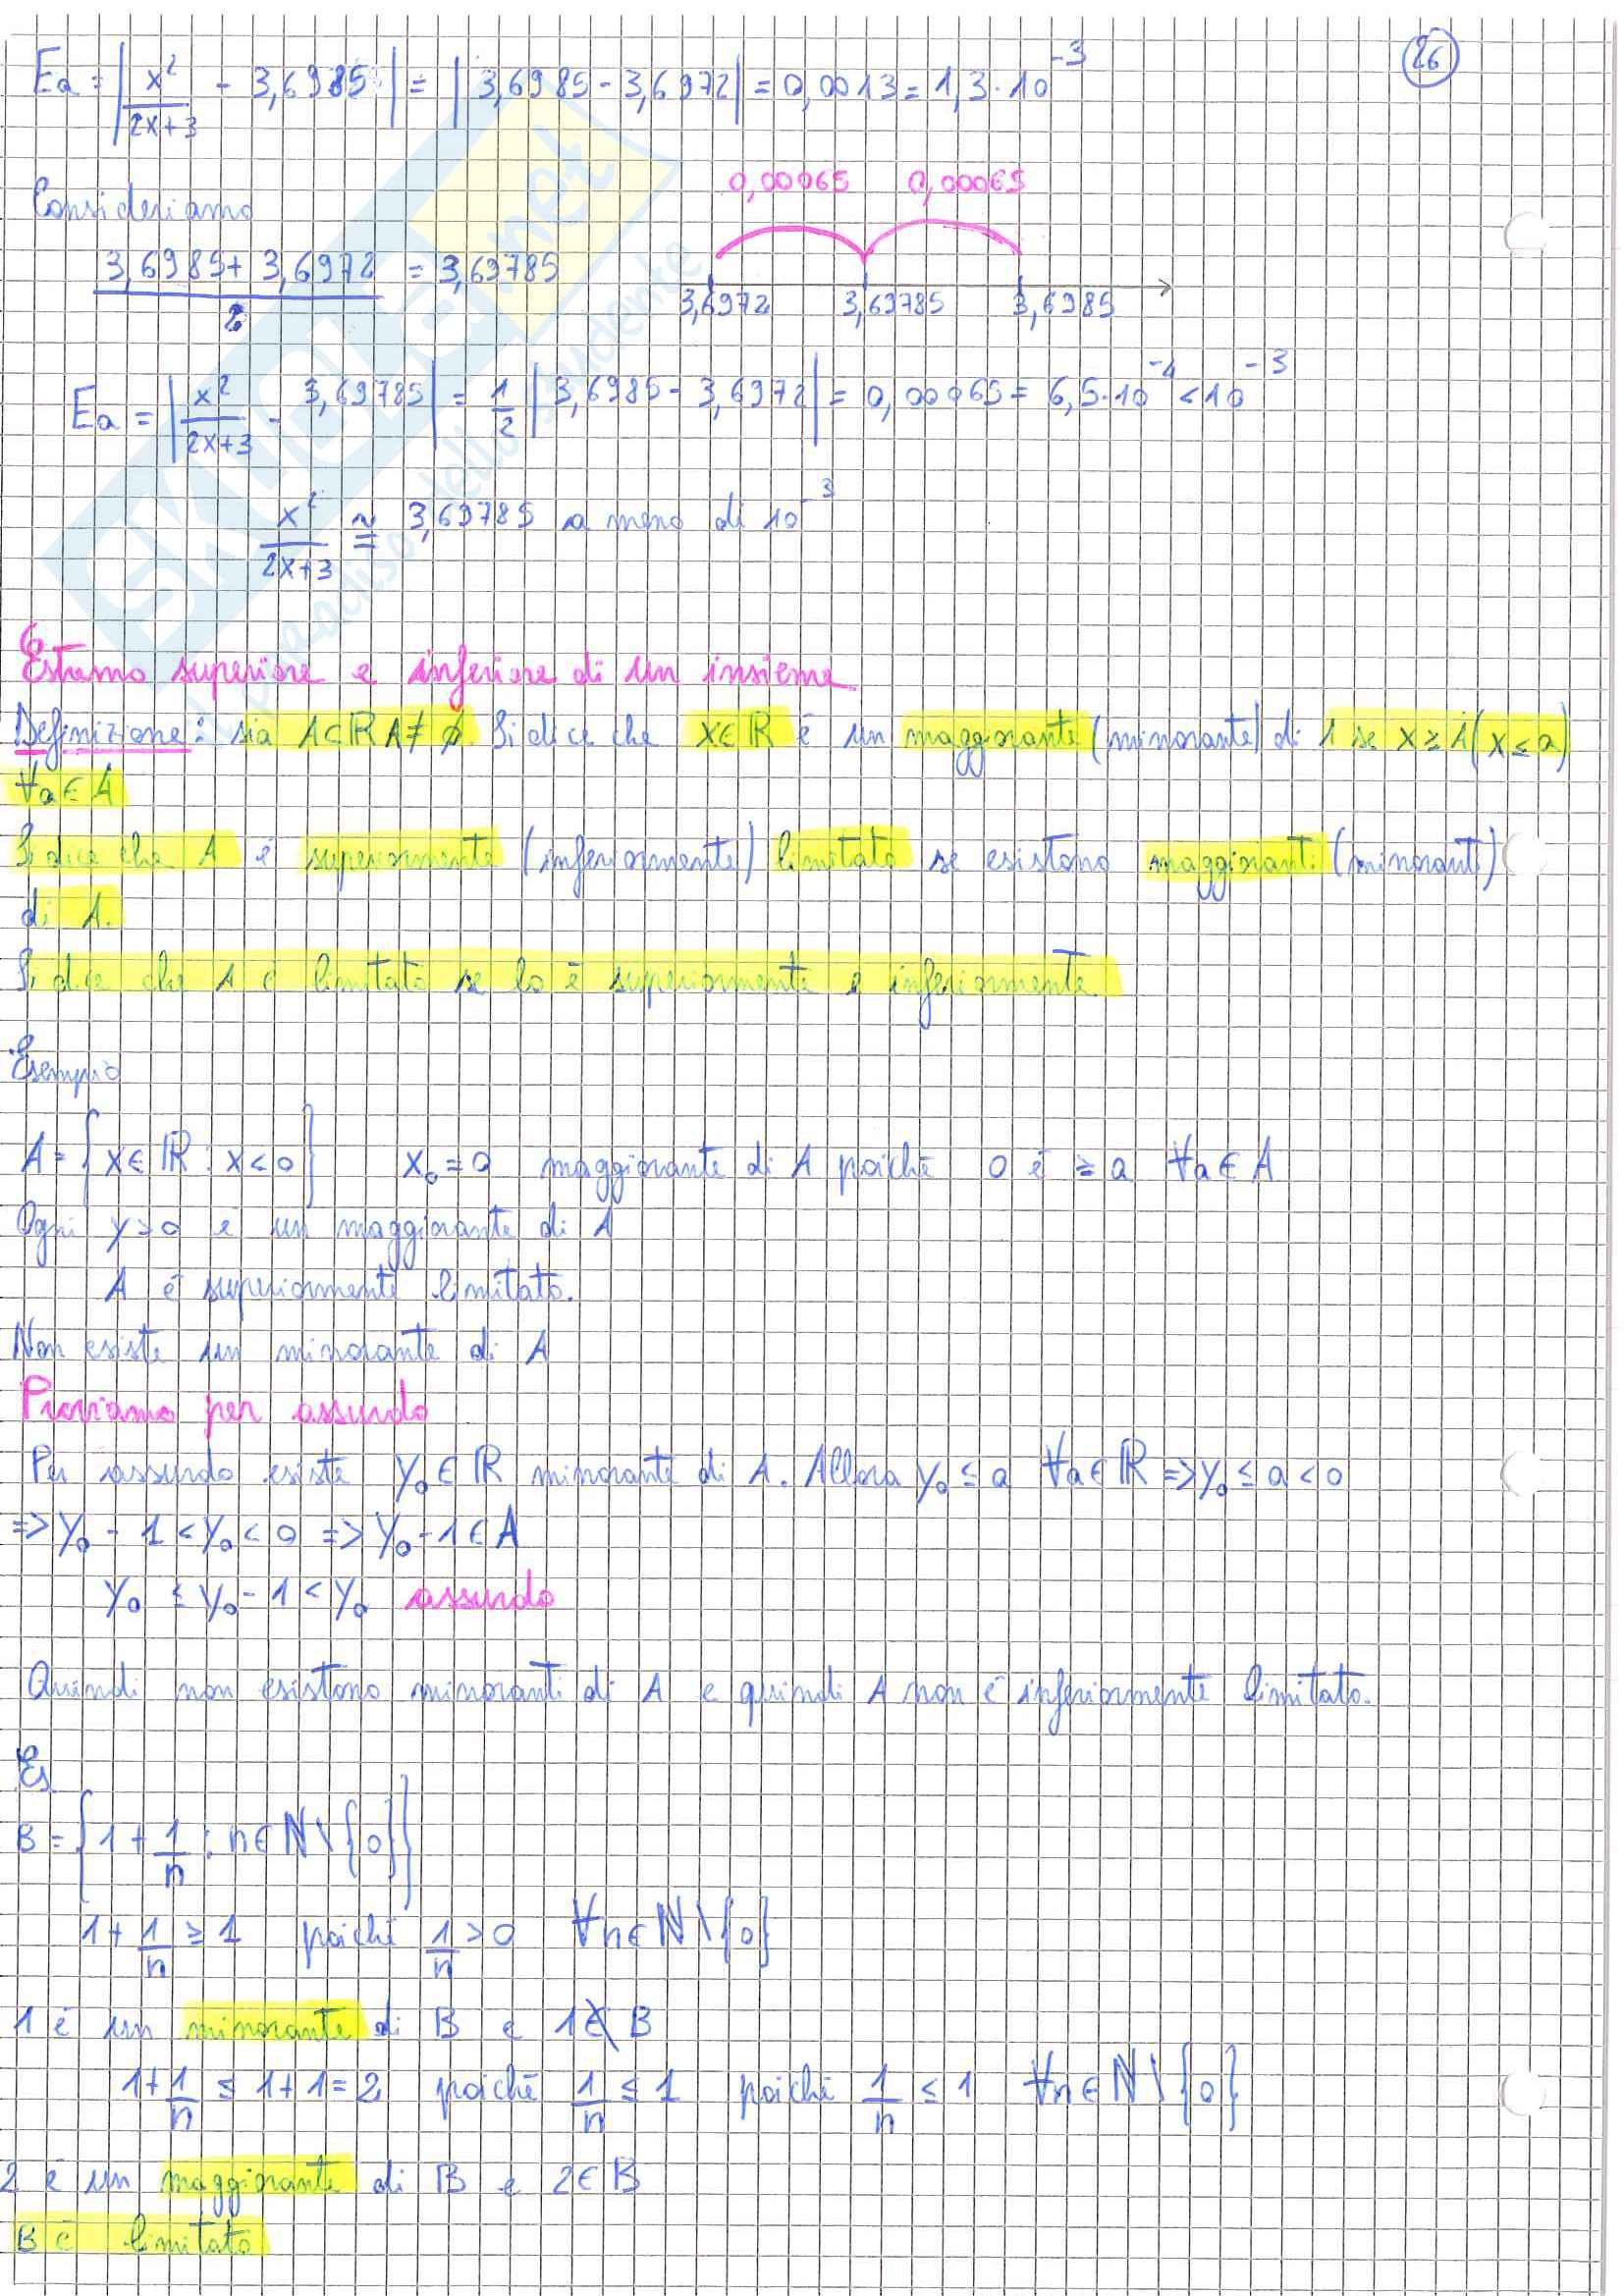 26
Ea = | x² / 2x+3 - 3,6985 | = | 3,6985 - 3,6972 | = 0,0013 = 1,3 · 10⁻³
Consideriamo
(3,6985 + 3,6972) / 2 = 3,69785
0,00065 0,00065
3,6972 3,69785 3,6985
Ea = | x² / 2x+3 - 3,69785 | = 1/2 | 3,6985 - 3,6972 | = 0,00065 = 6,5 · 10⁻⁴ < 10⁻³
x² / 2x+3 ≅ 3,69785 a meno di 10⁻³
Estremo superiore e inferiore di un insieme.
Definizione: sia A⊂ℝ A≠∅. Si dice che x∈ℝ è un maggiorante (minorante) di 1 se x ≥ A (x ≤ a)
∀a∈A
Si dice che A è superiormente (inferiormente) limitato se esistono maggioranti (minoranti)
di A.
Si dice che A è limitato se lo è superiormente e inferiormente
Esempio
A = {x∈ℝ : x<0} x₀=0 maggiorante di A poiché 0 è ≥ a ∀a∈A
Ogni y>0 è un maggiorante di A
A è superiormente limitato.
Non esiste un minorante di A
Proviamo per assurdo
Per assurdo esiste y₀∈ℝ minorante di A. Allora y₀ ≤ a ∀a∈ℝ => y₀ ≤ a < 0
=> y₀ - 1 < y₀ < 0 => y₀ - 1 ∈ A
y₀ ≤ y₀ - 1 < y₀ assurdo
Quindi non esistono minoranti di A e quindi A non è inferiormente limitato.
Es
B = {1 + 1/n : n∈ℕ\{0}}
1 + 1/n ≥ 1 poiché 1/n > 0 ∀n∈ℕ\{0}
1 è un minorante di B e 1∉B
1 + 1/n ≤ 1+1=2 poiché 1/n ≤ 1 poiché 1/n ≤ 1 ∀n∈ℕ\{0}
2 è un maggiorante di B e 2∈B
B è limitato